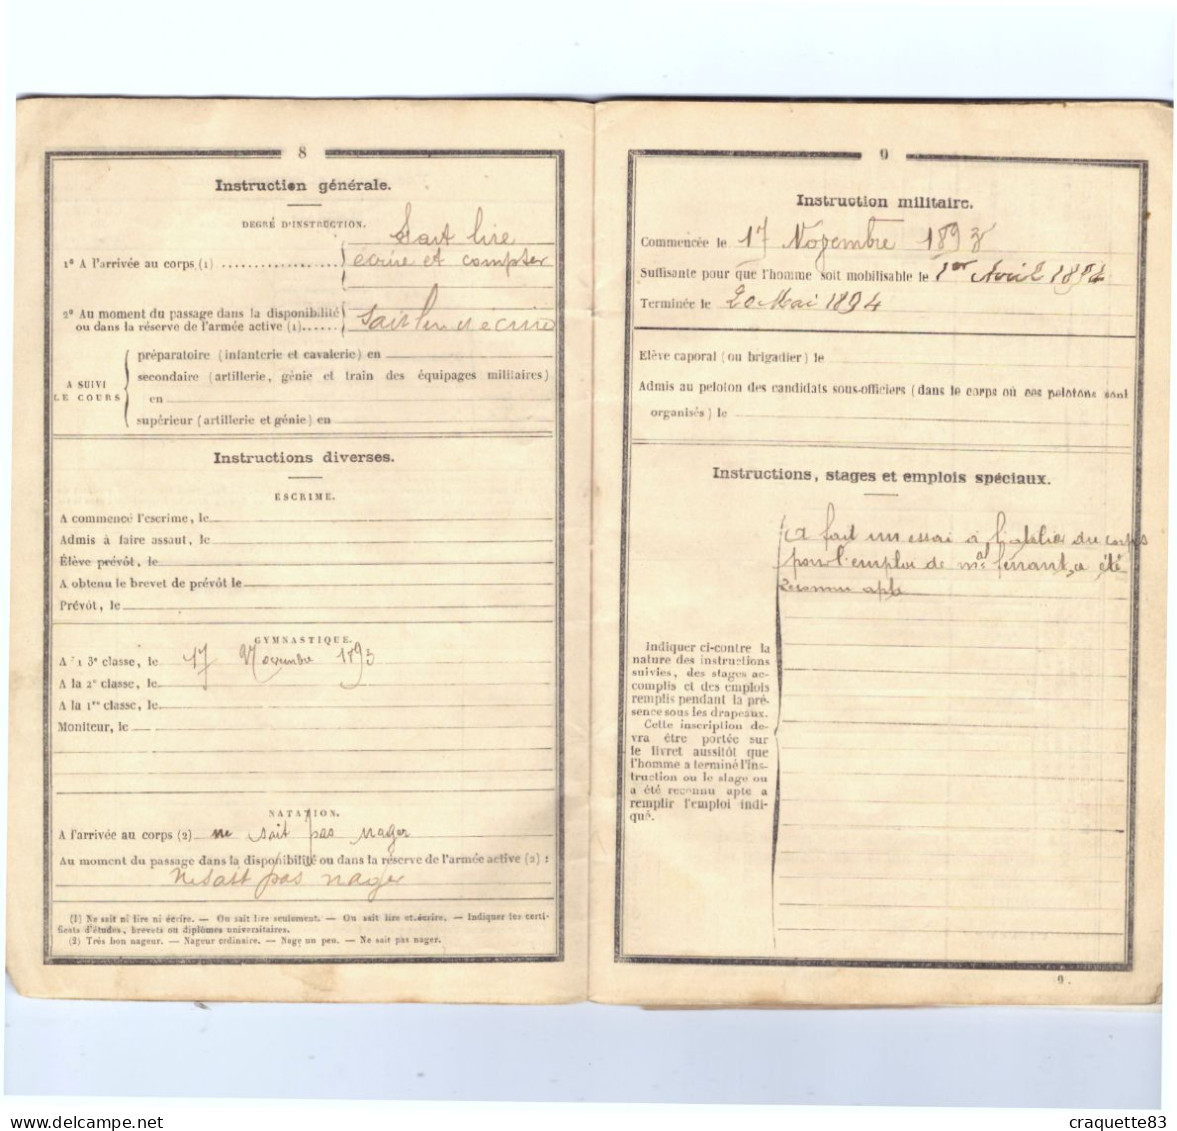 8
Instruction générale.
DEGRÉ D'INSTRUCTION.
Sait lire
1° A l'arrivée au corps (1) écrire et compter
2° Au moment du passage dans la disponibilité
ou dans la réserve de l'armée active (1) Sait lire et écrire
A SUIVI
LE COURS
préparatoire (infanterie et cavalerie) en
secondaire (artillerie, génie et train des équipages militaires)
en
supérieur (artillerie et génie) en
Instructions diverses.
ESCRIME.
A commencé l'escrime, le
Admis à faire assaut, le
Élève prévôt, le
A obtenu le brevet de prévôt le
Prévôt, le
GYMNASTIQUE.
A la 3e classe, le 17 Novembre 1893
A la 2e classe, le
A la 1re classe, le
Moniteur, le
NATATION.
A l'arrivée au corps (2) ne sait pas nager
Au moment du passage dans la disponibilité ou dans la réserve de l'armée active (2) :
Ne sait pas nager
(1) Ne sait ni lire ni écrire. — Ou sait lire seulement. — Ou sait lire et écrire. — Indiquer les certi-
ficats d'études, brevets ou diplômes universitaires.
(2) Très bon nageur. — Nageur ordinaire. — Nage un peu. — Ne sait pas nager.
9
Instruction militaire.
Commencée le 17 Novembre 1893
Suffisante pour que l'homme soit mobilisable le 1er Avril 1894
Terminée le 20 Mai 1894
Elève caporal (ou brigadier) le
Admis au peloton des candidats sous-officiers (dans le corps où ces pelotons sont
organisés) le
Instructions, stages et emplois spéciaux.
A fait un essai à l'atelier du corps
pour l'emploi de mal ferrant, a été
reconnu apte
Indiquer ci-contre la
nature des instructions
suivies, des stages ac-
complis et des emplois
remplis pendant la pré-
sence sous les drapeaux.
Cette inscription de-
vra être portée sur
le livret aussitôt que
l'homme a terminé l'ins-
truction ou le stage ou
a été reconnu apte a
remplir l'emploi indi-
qué.
9.
www.delcampe.net
craquette83